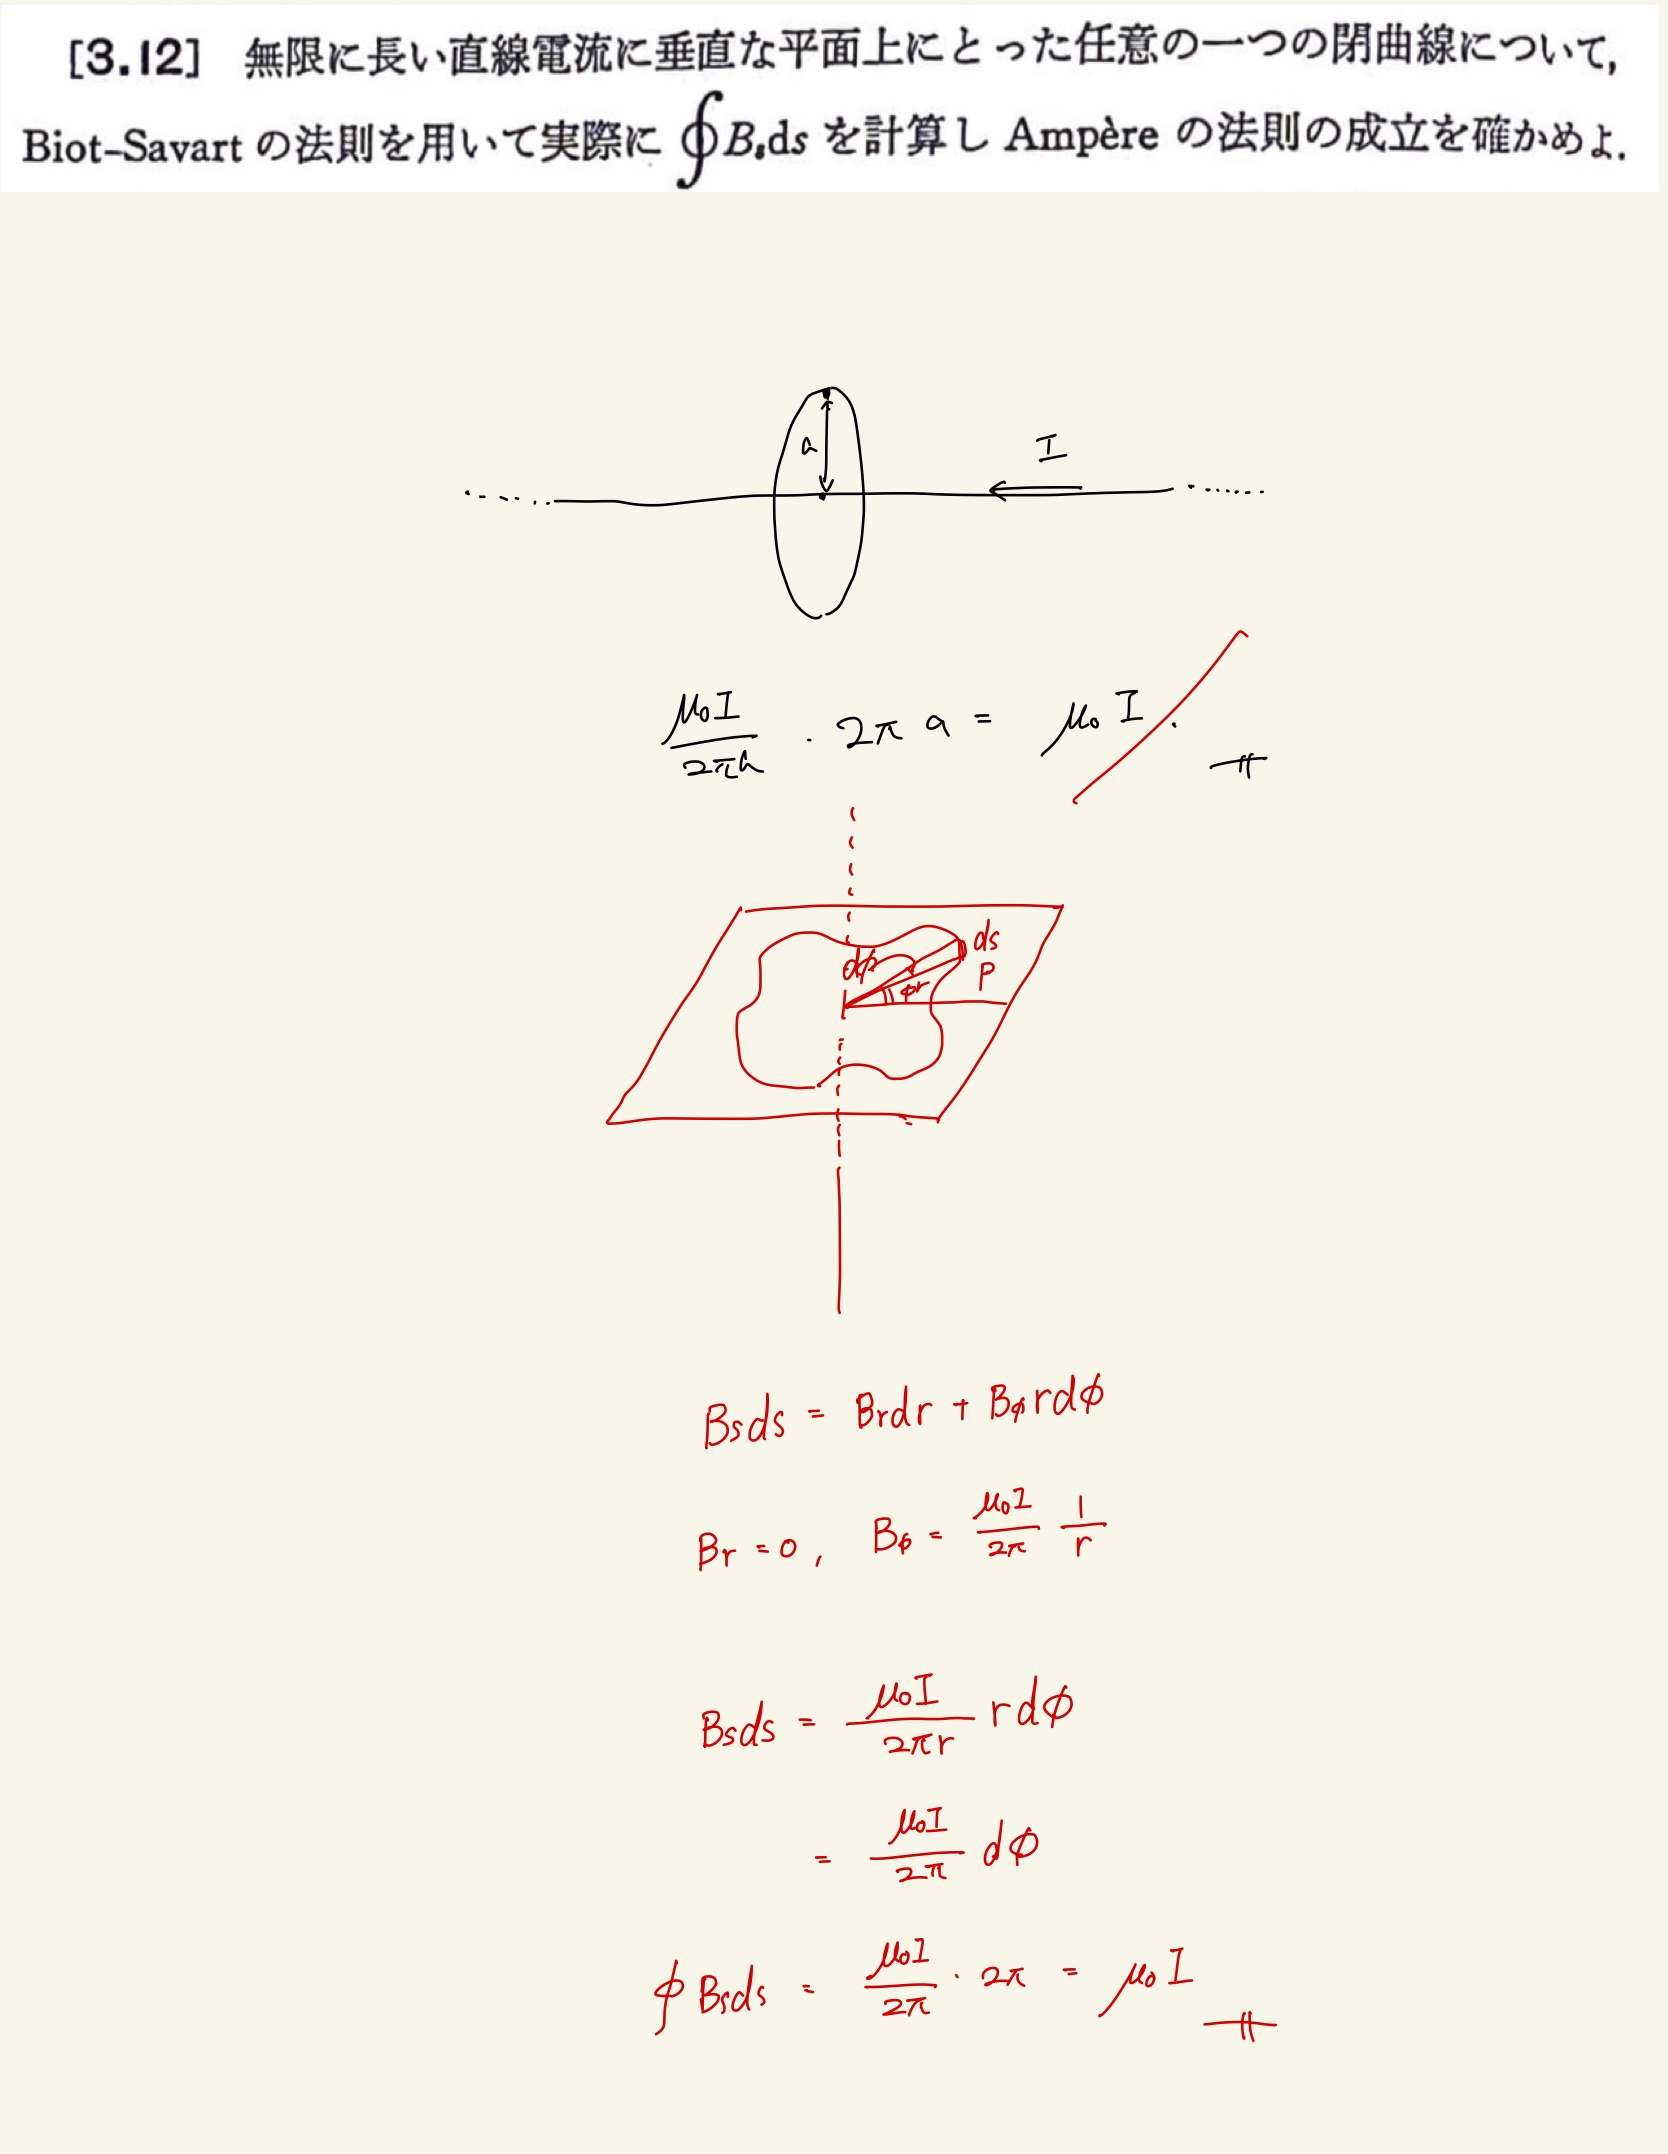 [3.12] 無限に長い直線電流に垂直な平面上にとった任意の一つの閉曲線について,
Biot–Savart の法則を用いて実際に ∮Bₛds を計算し Ampère の法則の成立を確かめよ.
a
I
μ₀I/2πa · 2πa = μ₀I.
ds
dφ
P
φ r
Bsds = Brdr + Bφrdφ
Br = 0, Bφ = μ₀I/2π 1/r
Bsds = μ₀I/2πr rdφ
= μ₀I/2π dφ
∮Bsds = μ₀I/2π · 2π = μ₀I